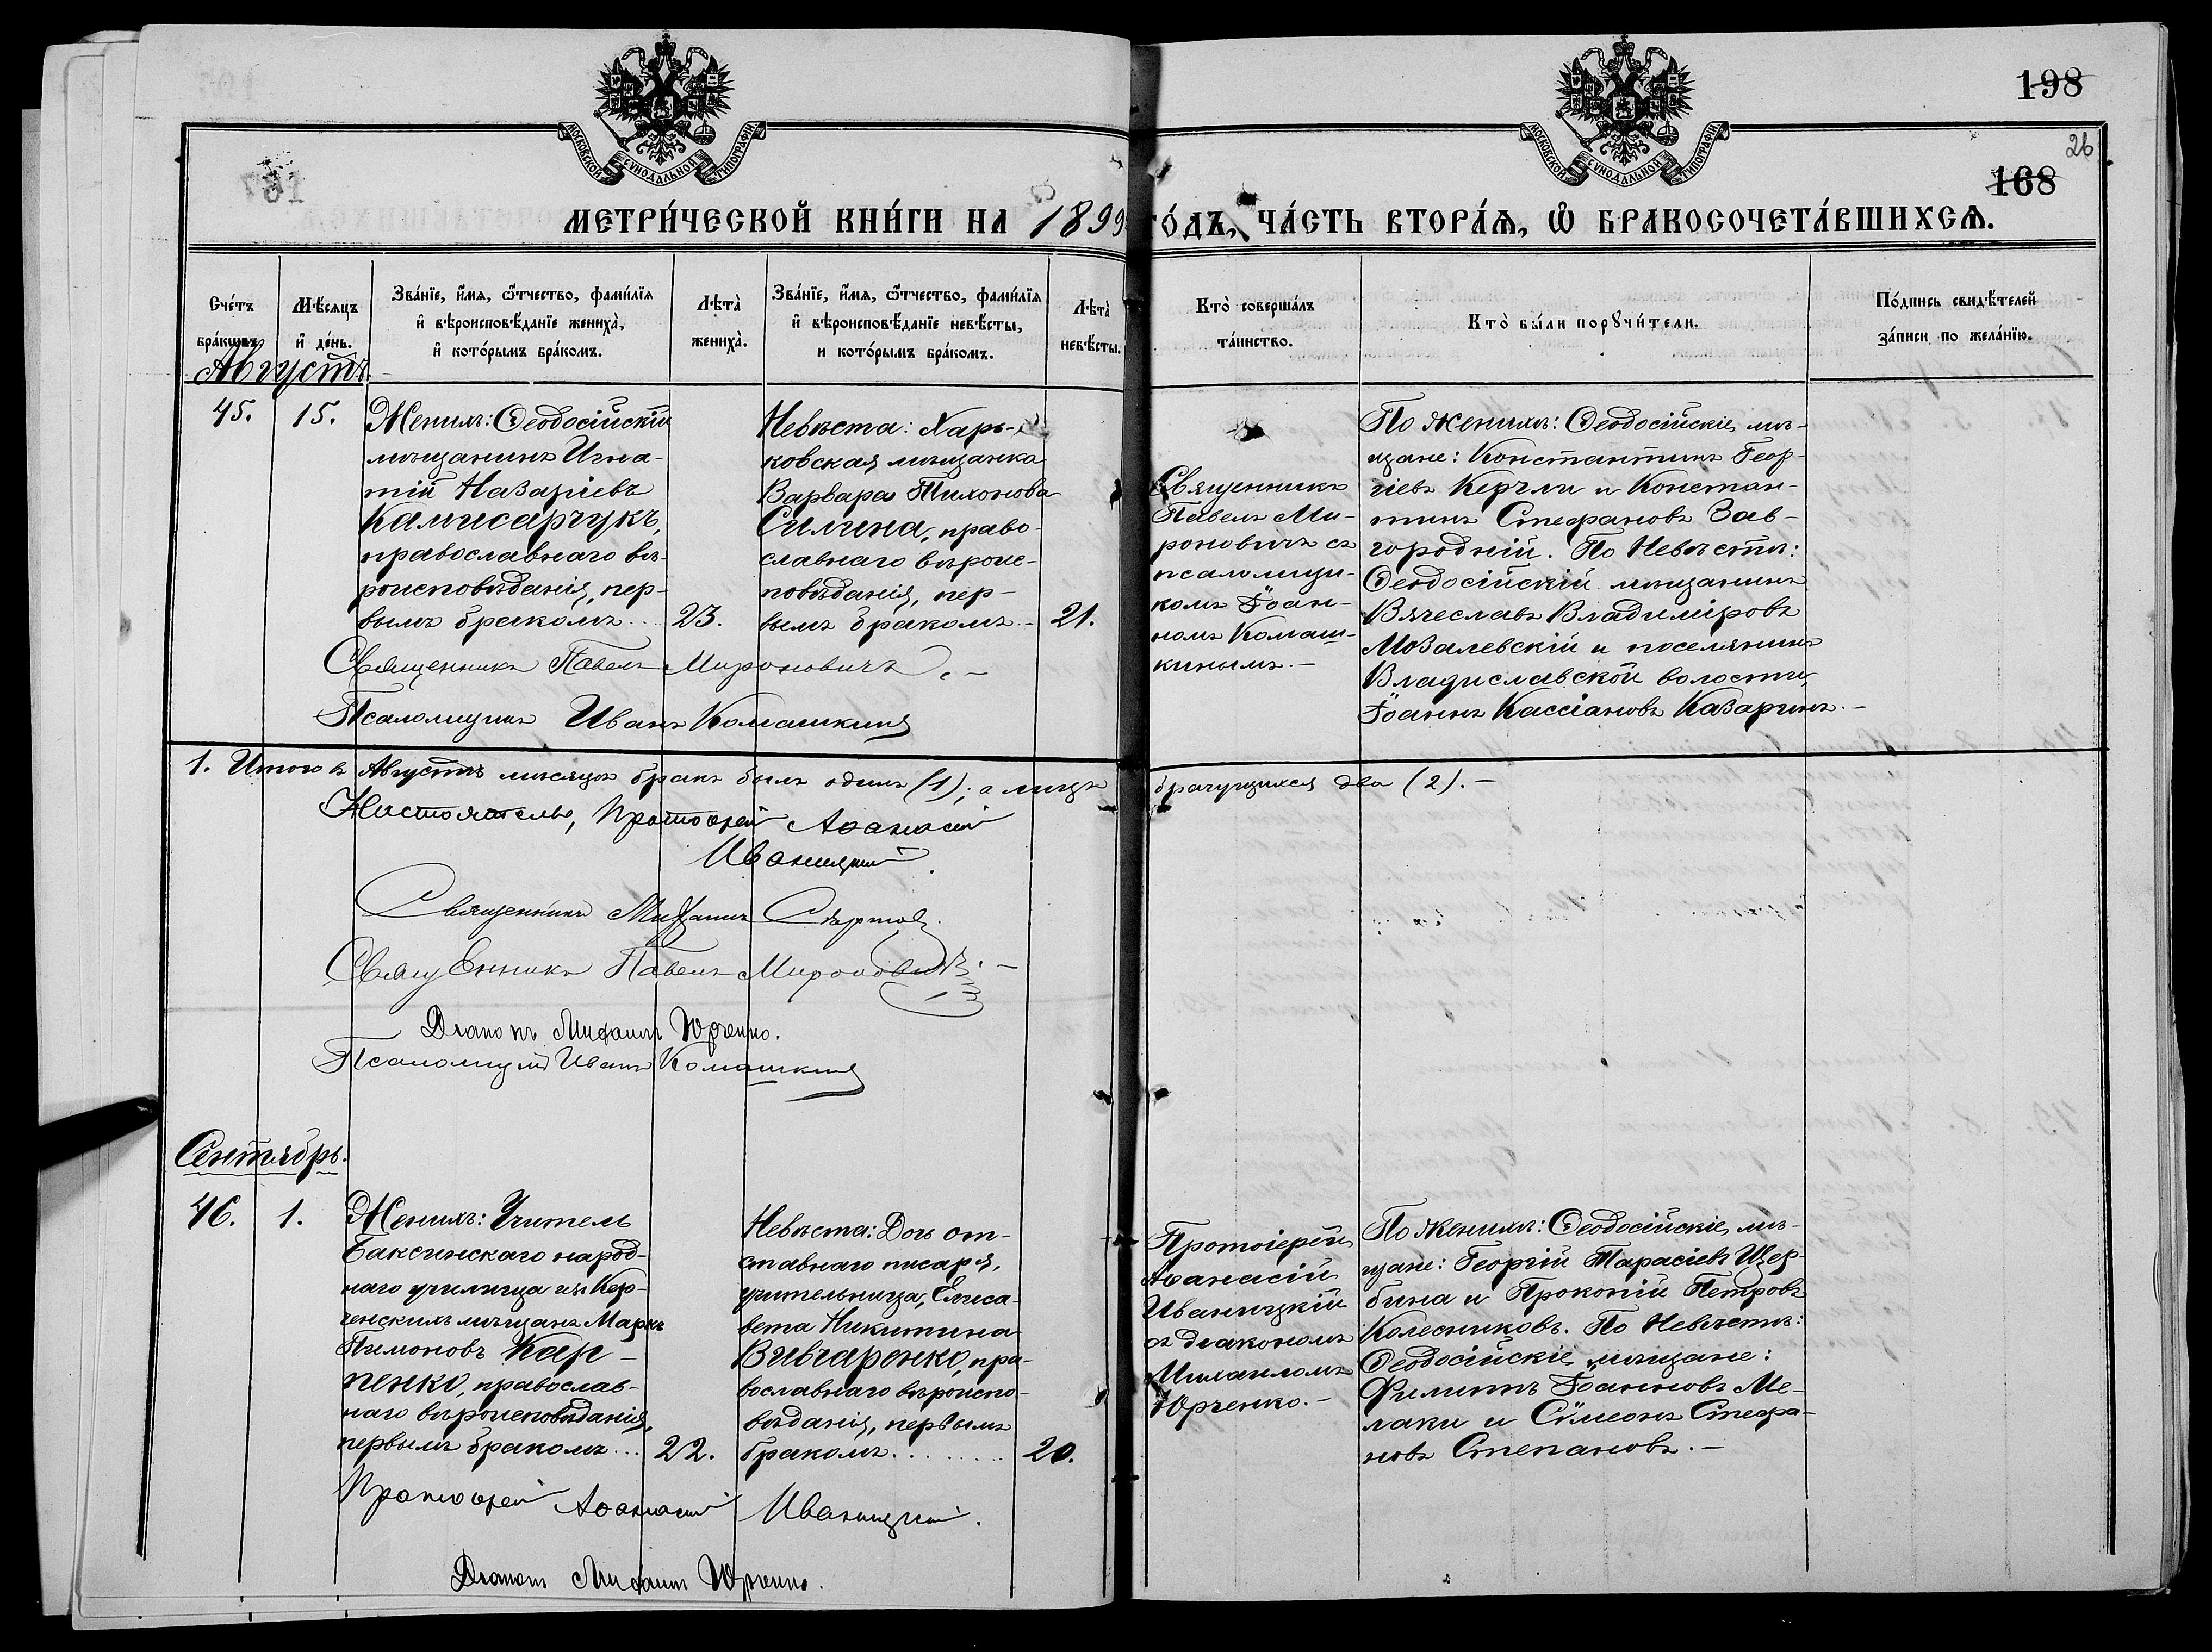 198
26
168
МОСКОВСКОЙ СУНОДАЛЬНОЙ ТИПОГРАФІИ
МОСКОВСКОЙ СУНОДАЛЬНОЙ ТИПОГРАФІИ
МЕТРИ́ЧЕСКОЙ КНИ́ГИ НА 1899 ГО́ДЪ, ЧА́СТЬ ВТОРА́Ѧ, Ѽ БРАКОСОЧЕТА́ВШИХСѦ.
Сче́тъ
бра́кωвъ
Мѣ́сяцъ
и҆ де́нь.
Зва́нїе, и҆́мя, ѻ҆́тчество, фами́лїя
и҆ вѣроисповѣ́данїе жениха̀,
и҆ кото́рымъ бра́комъ.
Лѣта̀
жениха̀.
Зва́нїе, и҆́мя, ѻ҆́тчество, фами́лїя
и҆ вѣроисповѣ́данїе невѣ́сты,
и кото́рымъ бра́комъ.
Лѣта̀
невѣ́сты.
Кто̀ соверша́лъ
та́инство.
Кто̀ бы́ли порꙋчи́тели.
По́дпись свидѣ́телей
за́писи по жела́нїю.
Августъ.
45.
15.
Женихъ: Ѳеодосійскій
мѣщанинъ Игна-
тій Назаріевъ
Камисарчукъ,
православнаго вѣ-
роисповѣданія, пер-
вымъ бракомъ...
23.
Невѣста: Харь-
ковская мѣщанка
Варвара Тихонова
Силина, право-
славнаго вѣроис-
повѣданія, пер-
вымъ бракомъ.-
21.
Священникъ
Павелъ Ми-
роновичъ съ
псаломщи-
комъ Іоан-
номъ Комаш-
кинымъ.-
По Женихѣ: Ѳеодосійскіе мѣ-
щане: Константинъ Геор-
гіевъ Керчли и Констан-
тинъ Стефановъ Зав-
городній. По Невѣстѣ:
Ѳеодосійскій мѣщанинъ
Вячеславъ Владиміровъ
Мозалевскій и поселянинъ
Владиславской волости,
Іоаннъ Кассіановъ Казаринъ.-
Священникъ Павелъ Мироновичъ.-
Псаломщикъ Иванъ Комашкинъ
1. Итого въ Августѣ мѣсяцѣ бракъ былъ одинъ (1); а лицъ брачущихся два (2).-
Настоятель, Протоіерей Аѳанасій
Иваницкій.
Священникъ Михаилъ
Священникъ Павелъ Мироновичъ.-
Діаконъ Михаилъ Юрченко.
Псаломщикъ Иванъ Комашкинъ
Сентябрь.
46.
1.
Женихъ: Учитель
Баксинскаго народ-
наго училища изъ Кер-
ченскихъ мѣщанъ Маркъ
Пимоновъ Кар-
пенко, православ-
наго вѣроисповѣданія,
первымъ бракомъ...
22.
Невѣста: Дочь от-
ставнаго писаря,
учительница, Елиса-
вета Никитина
Вивчаренко, пра-
вославнаго вѣроиспо-
вѣданія, первымъ
бракомъ........
20.
Протоіерей
Аѳанасій
Иваницкій
съ діакономъ
Михаиломъ
Юрченко.-
По Женихѣ: Ѳеодосійскіе мѣ-
щане: Георгій Тарасіевъ Щер-
бина и Прокопій Петровъ
Колесниковъ. По Невѣстѣ:
Ѳеодосійскіе мѣщане:
Филиппъ Іоанновъ Ме-
лаки и Сѵмеонъ Стефа-
новъ Степановъ.-
Протоіерей Аѳанасій Иваницкій.
Діаконъ Михаилъ Юрченко.